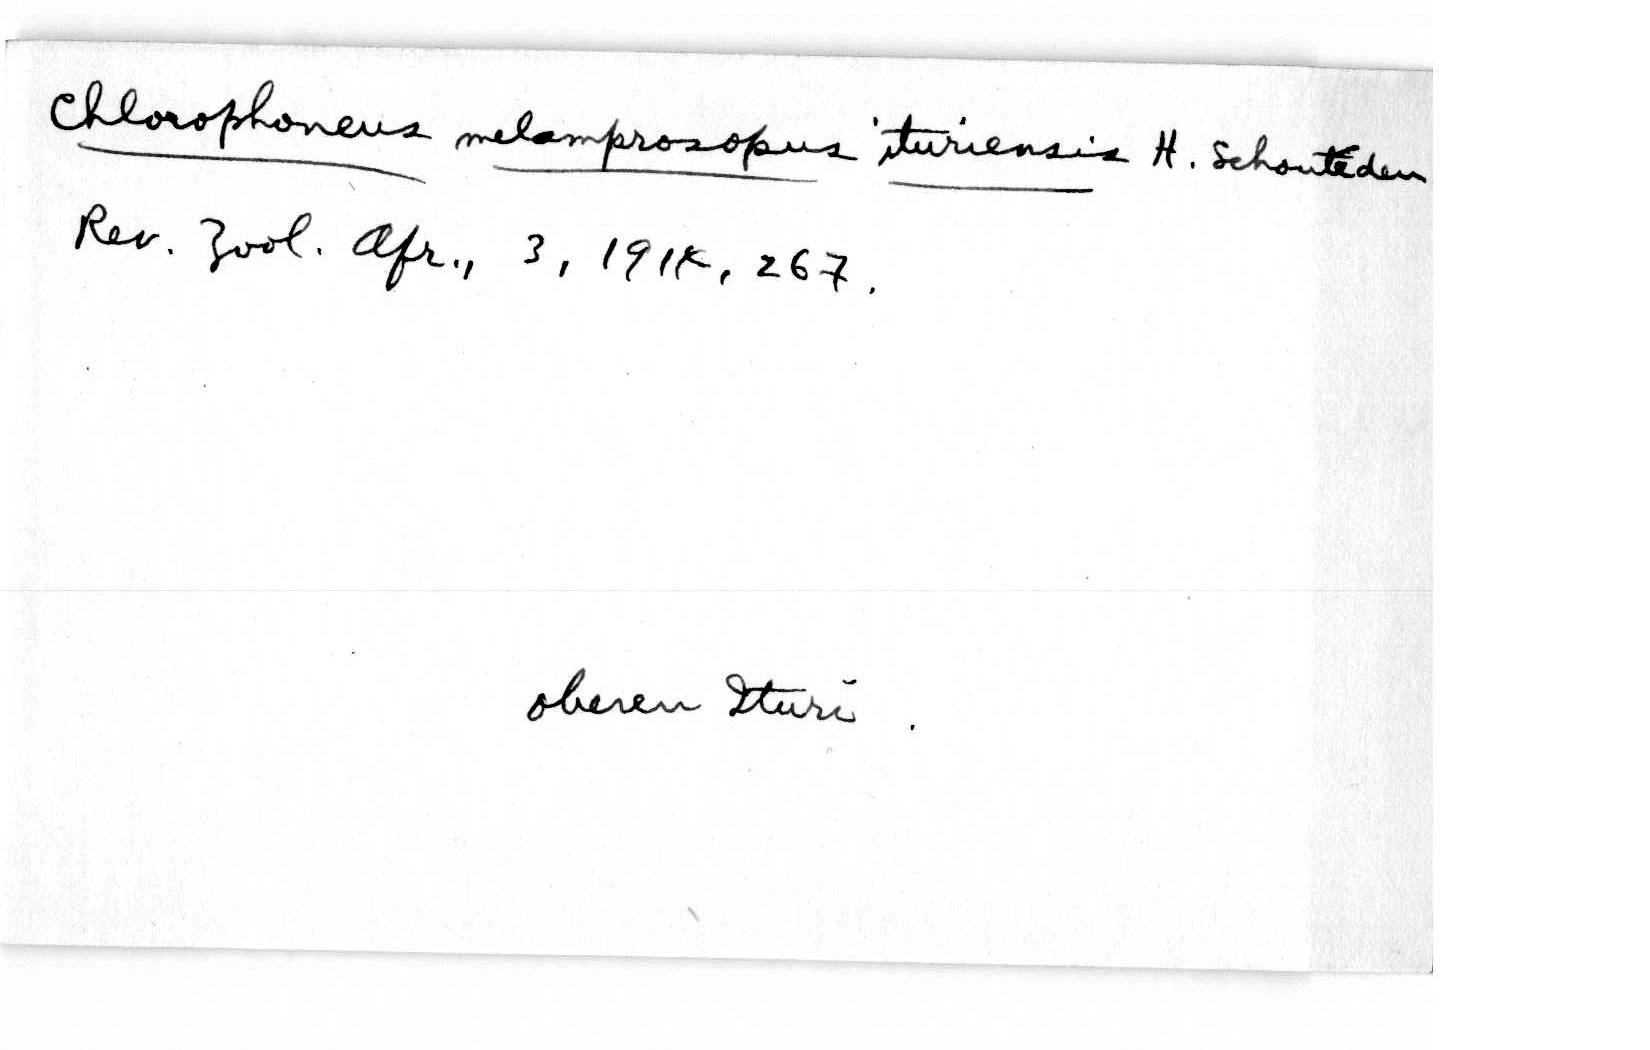 Chlorophoneus melamprosopus ituriensis H. Schouteden
Rev. Zool. Afr., 3, 1914, 267.
oberen Ituri.